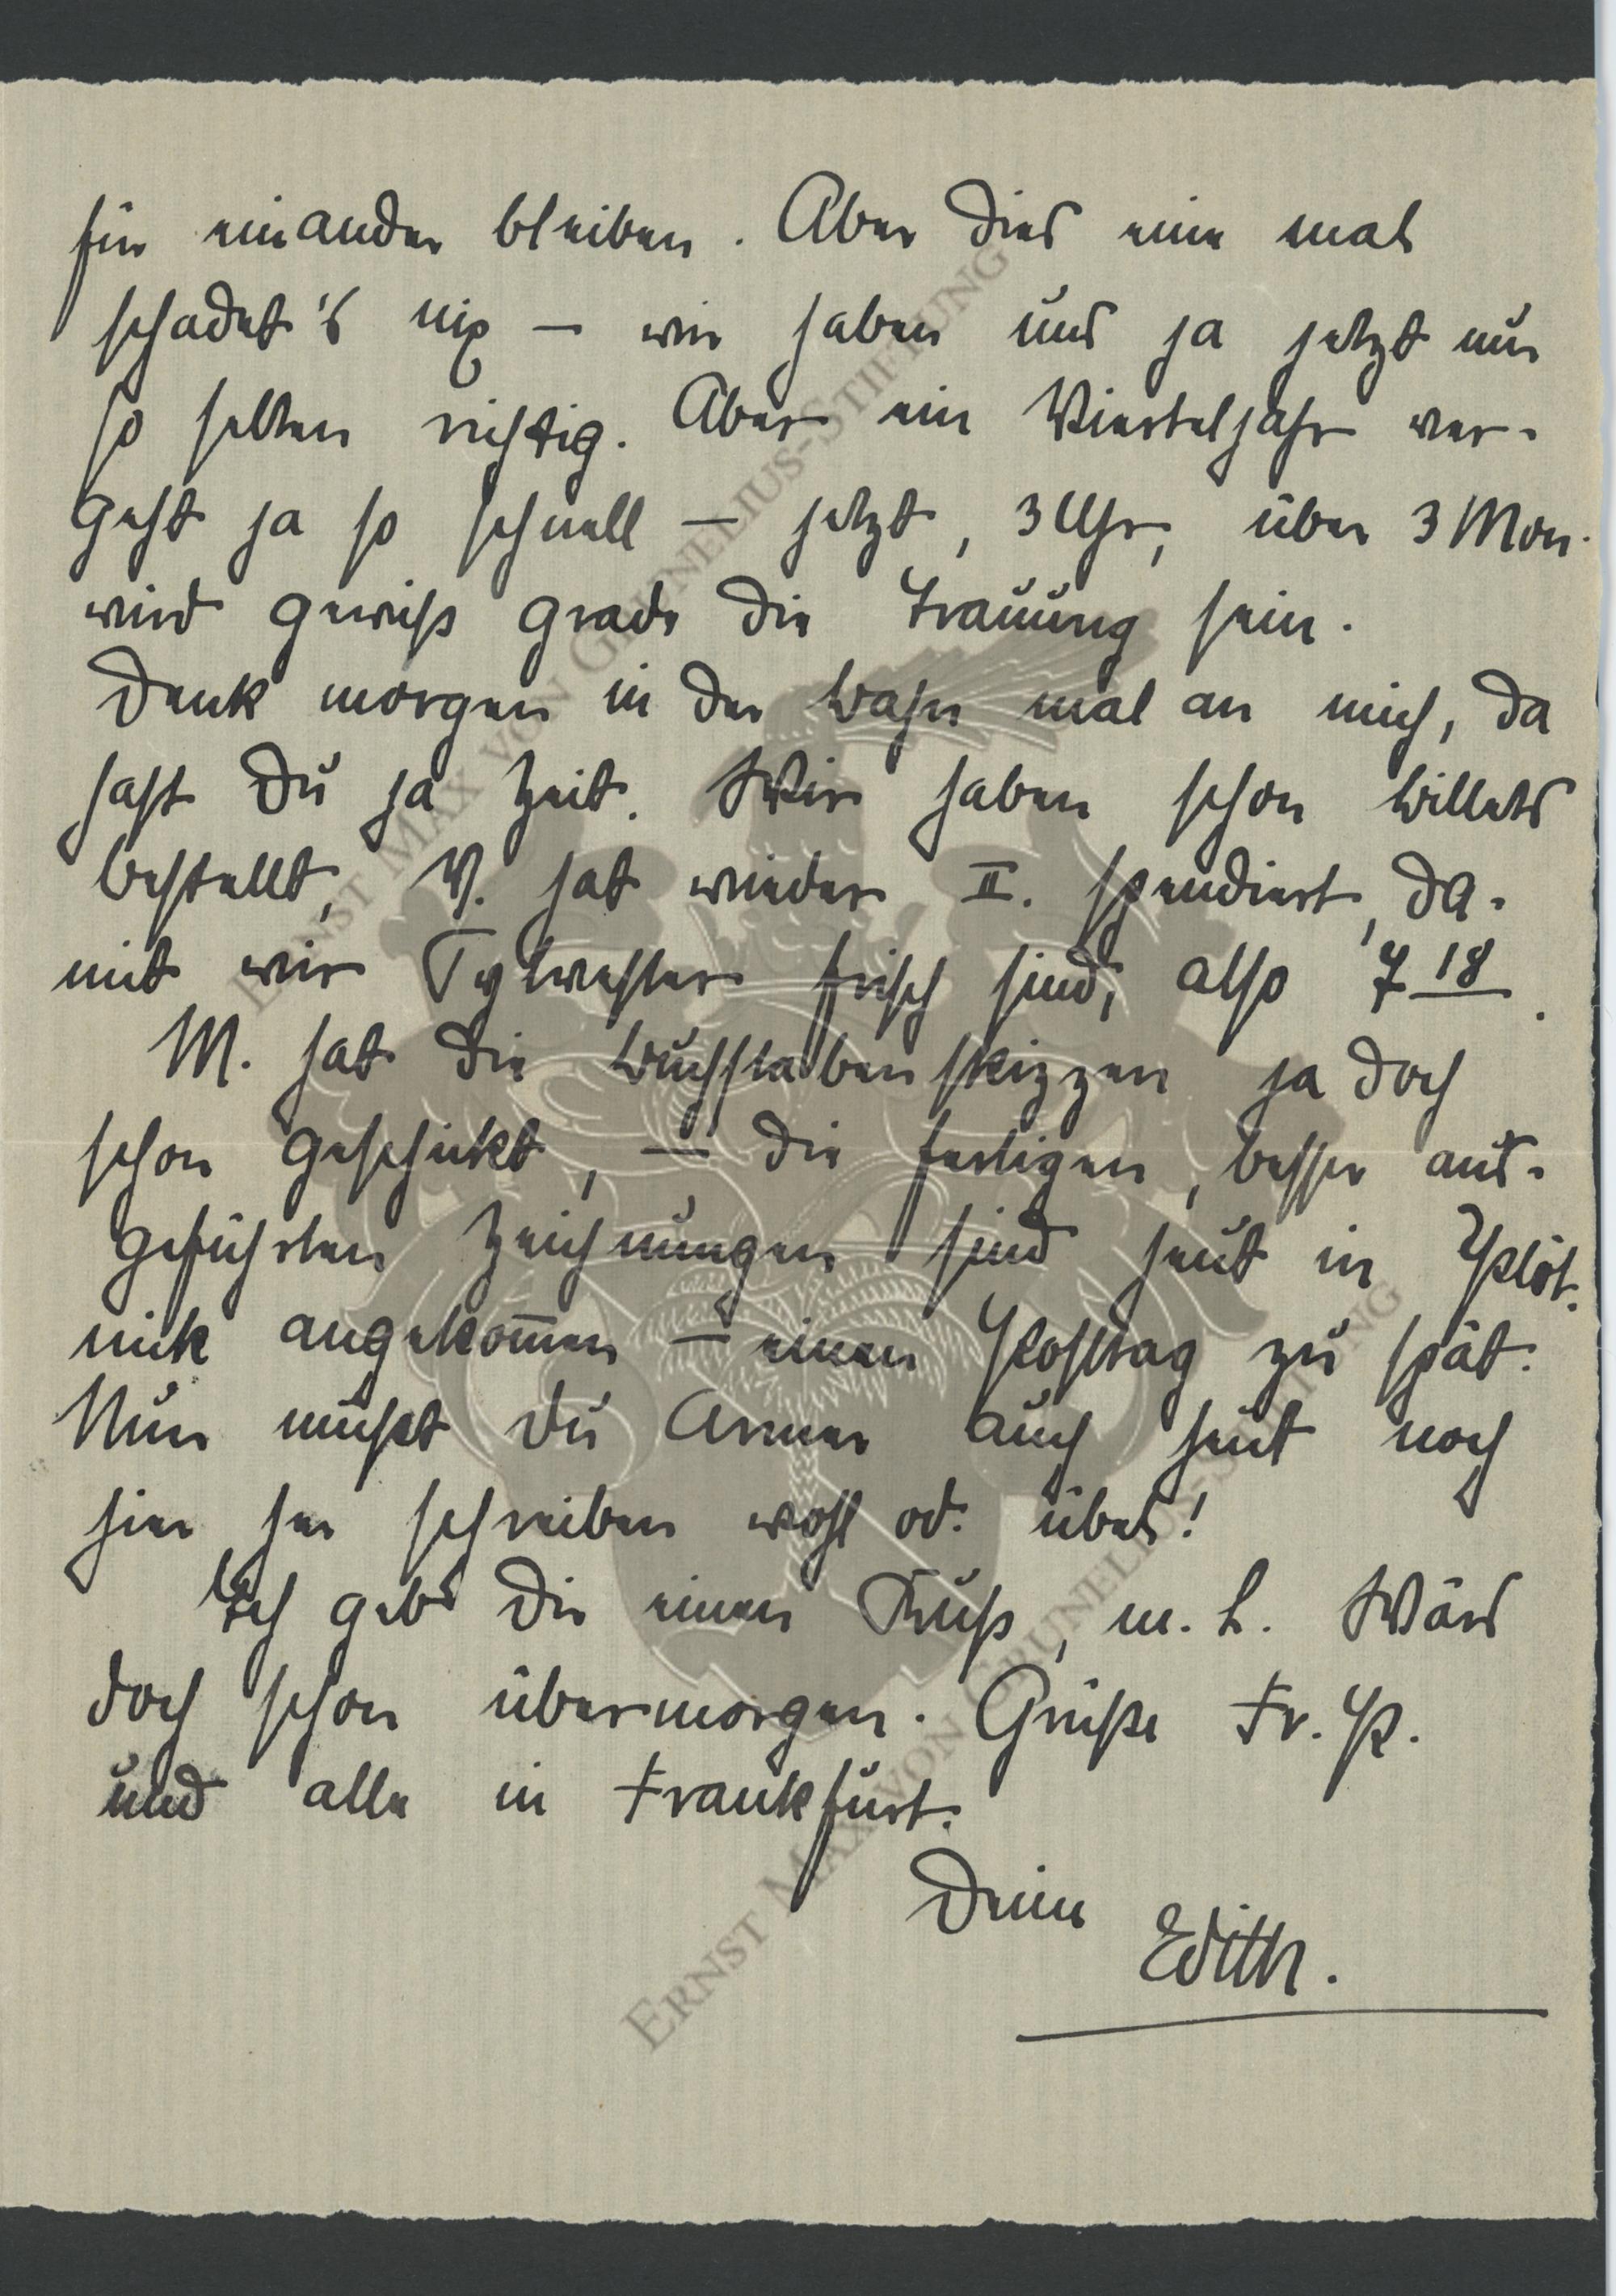 für einander bleiben. Aber dies eine mal
schadet's nix – wir haben uns ja jetzt nur
so selten richtig. Aber ein Vierteljahr ver-
geht ja so schnell – jetzt, 3 Uhr, über 3 Mon.
wird gewiß grade die Trauung sein.
Denk morgen in der Bahn mal an mich, da
hast Du ja Zeit. Wir haben schon Billets
bestellt, V. hat wieder II. spendiert, da-
mit wir Sylvester frisch sind, also 7 18.
M. hat die Buchstabenskizzen ja doch
schon geschickt, – die fertigen, besser aus-
geführten Zeichnungen sind heut in Plöt-
nik angekom̄en – einen Posttag zu spät.
Nun mußt Du Armer auch heut noch
hier her schreiben wohl od. übel!
Ich geb Dir einen Kuß, m. L. Wärs
doch schon übermorgen. Grüße Fr. P.
und alle in Frankfurt.
Deine
Edith.
ERNST MAX VON GRUNELIUS-STIFTUNG
ERNST MAX VON GRUNELIUS-STIFTUNG